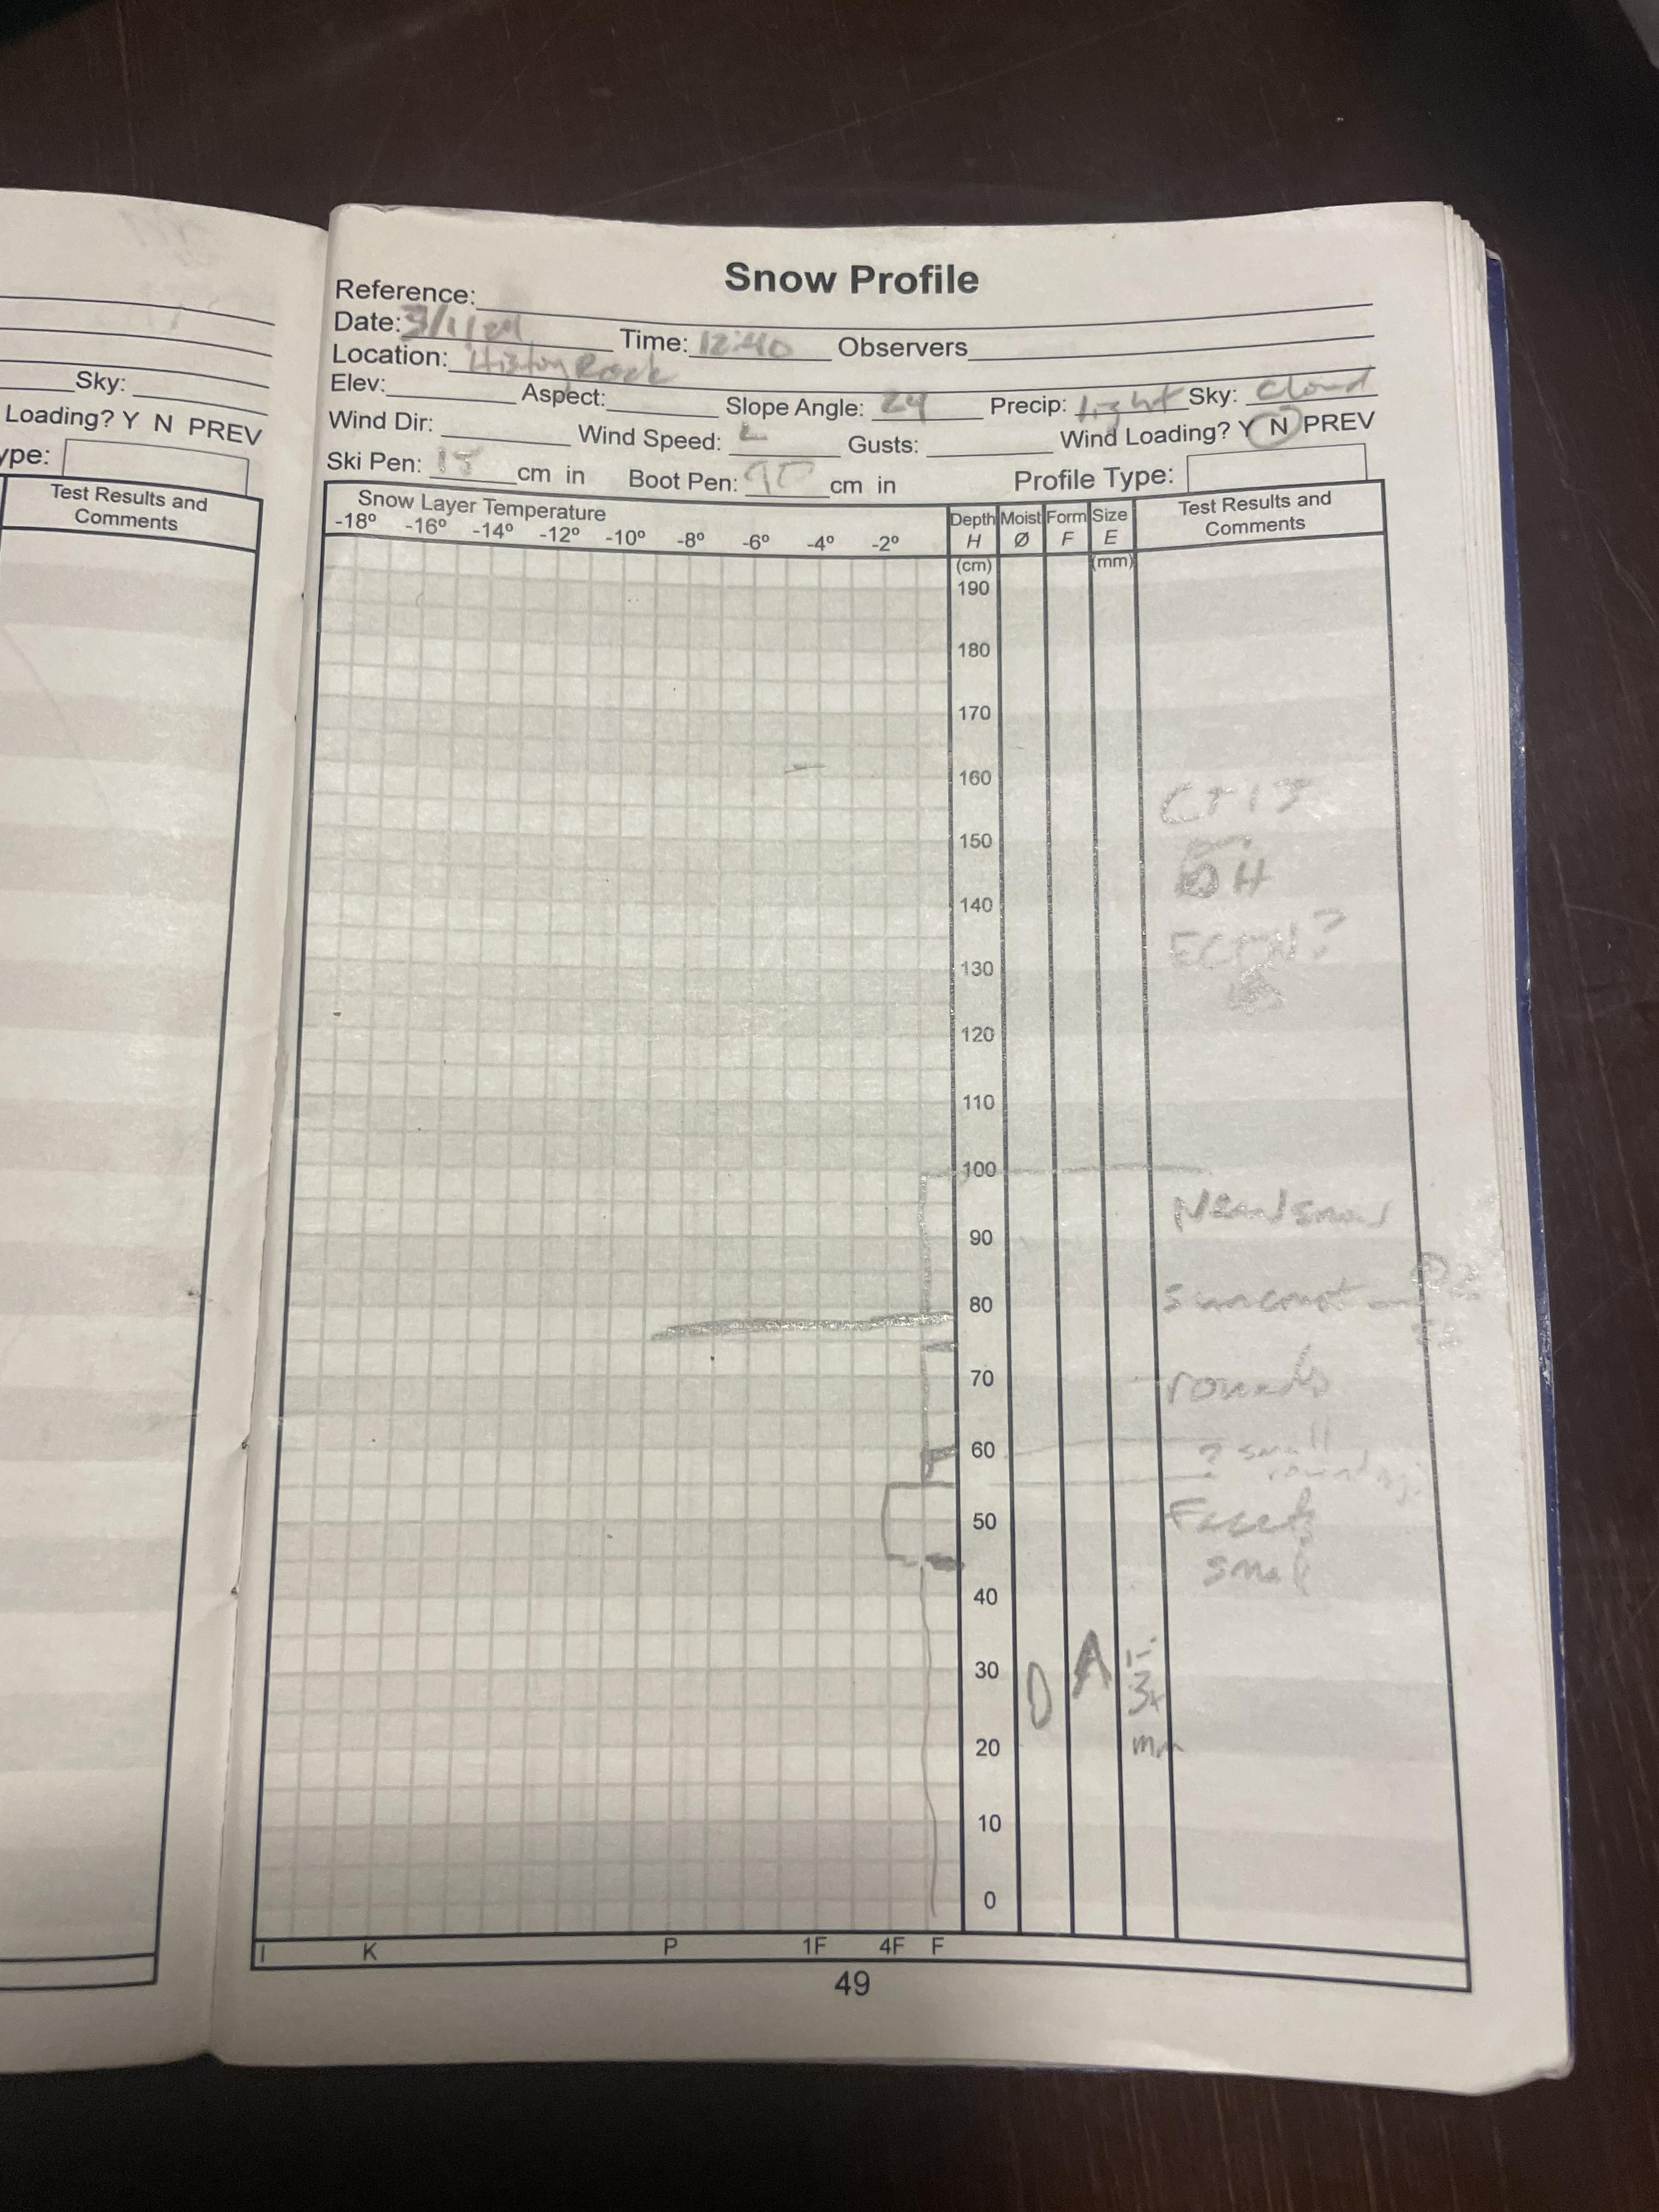 Snow Profile
Reference:
Date: 3/1/24 Time: 12:40 Observers
Location: History Rock
Elev: Aspect: Slope Angle: 24 Precip: Light Sky: Cloud
Wind Dir: Wind Speed: L Gusts: Wind Loading? Y N PREV
Ski Pen: 15 cm in Boot Pen: 90 cm in Profile Type:
Sky:
Loading? Y N PREV
ype:
Test Results and
Comments
Snow Layer Temperature
-18° -16° -14° -12° -10° -8° -6° -4° -2°
Depth Moist Form Size Test Results and
H Ø F E Comments
(cm) (mm)
190
180
170
160
CT 15
150
Ø H
140
ECTN?
130
120
110
100
New snow
90
80
suncrust
70
rounds
60
? small
rounds
50
Facets
small
40
30 0 A 1-
3+
20 mm
10
0
I K P 1F 4F F
49